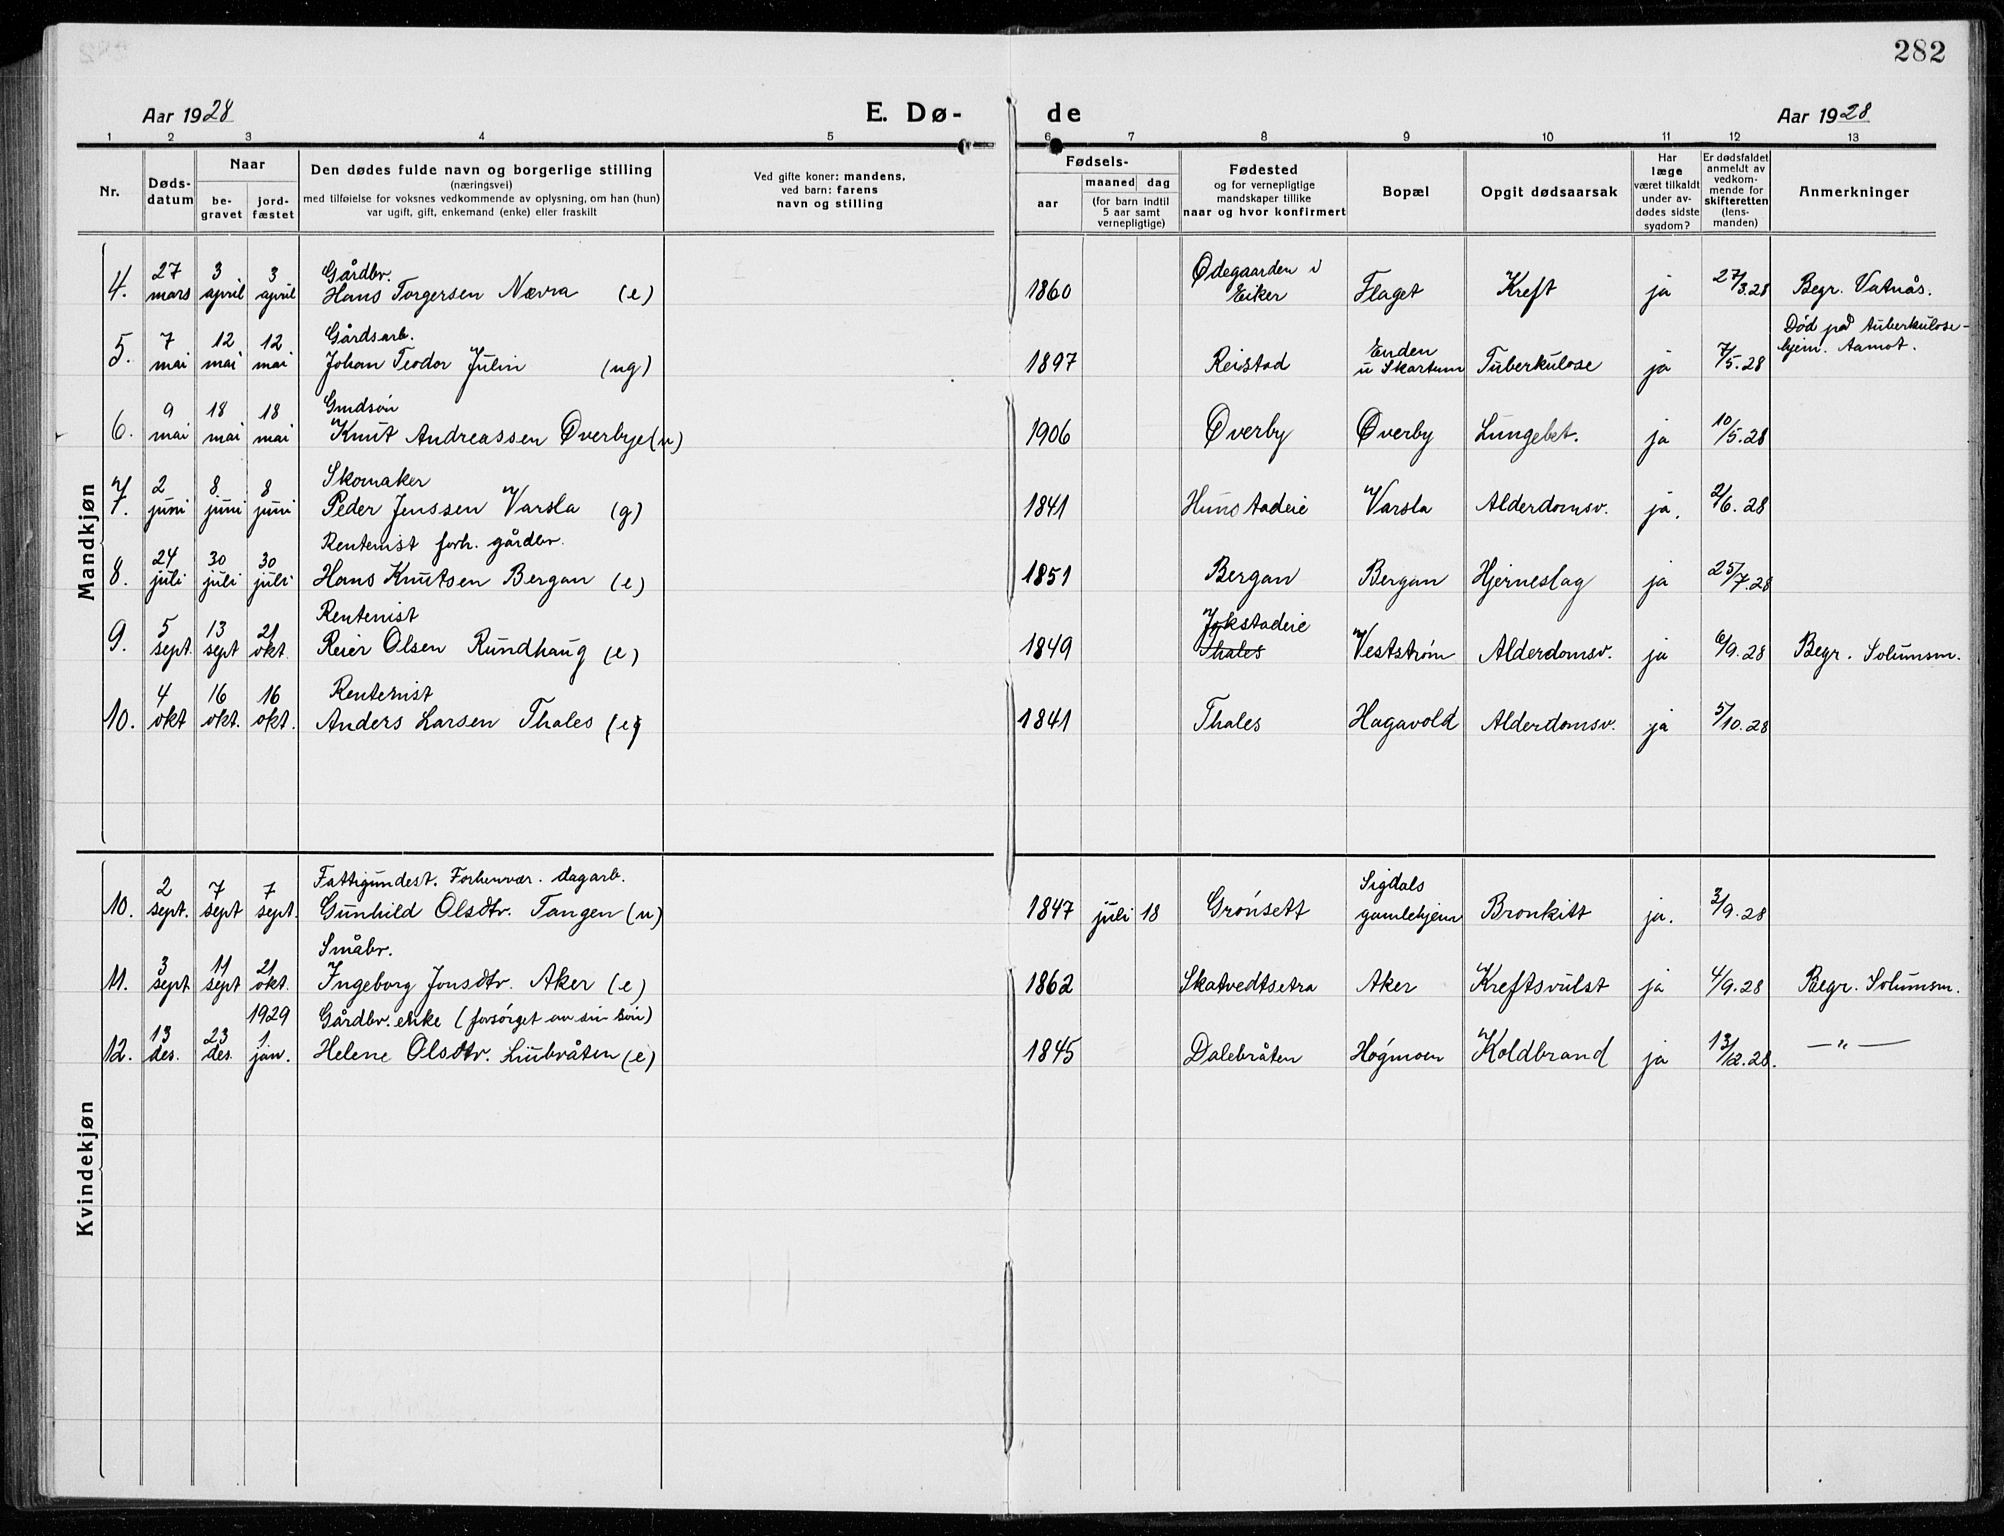 282
Aar 1928 E. Dø- de Aar 1928
1 2 3 4 5 6 7 8 9 10 11 12 13
Nr.
Døds-
datum
Naar
be-
gravet
jord-
fæstet
Den dødes fulde navn og borgerlige stilling
(næringsvei)
med tilføielse for voksnes vedkommende av oplysning, om han (hun)
var ugift, gift, enkemand (enke) eller fraskilt
Ved gifte koner: mandens,
ved barn: farens
navn og stilling
Fødsels-
aar
maaned dag
(for barn indtil
5 aar samt
vernepligtige)
Fødested
og for vernepligtige
mandskaper tillike
naar og hvor konfirmert
Bopæl
Opgit dødsaarsak
Har
læge
været tilkaldt
under av-
dødes sidste
sygdom?
Er dødsfaldet
anmeldt av
vedkom-
mende for
skifteretten
(lens-
manden)
Anmerkninger
Mandkjøn
27 3 3 Gårdbr. Ødegaarden i
4. mars april april Hans Torgersen Nævra (e) 1860 Eiker Flaget Kreft ja 27/3.28 Begr. Vatnås.
7 12 12 Gårdsarb. Enden Død på tuberkulose-
5. mai mai mai Johan Teodor Julin (ug) 1897 Reistad u Skartum Tuberkulose ja 7/5.28 hjem. Aamot.
9 18 18 Gmdsøn
6. mai mai mai Knut Andreassen Øverbye (u) 1906 Øverby Øverby Lungebet. ja 10/5.28
2 8 8 Skomaker
7. juni juni juni Peder Jenssen Varsla (g) 1841 Hunstadeie Varsla Alderdomsv. ja. 2/6.28
24 30 30 Rentenist forh. gårdbr.
8. juli juli juli Hans Knutsen Bergan (e) 1851 Bergan Bergan Hjerneslag ja 25/7.28
5 13 21 Rentenist Jokstadeie
9. sept. sept okt. Reier Olsen Rundhaug (e) 1849 Thales Veststrøm Alderdomsv. ja 6/9.28 Begr. Solumsm.
4 16 16 Rentenist
10. okt okt. okt. Anders Larsen Thales (e) 1841 Thales Hagavold Alderdomsv. ja 5/10.28
Kvindekjøn
2 7 7 Fattigundest. Forhenvær. dagarb. Sigdals
10. sept. sept sept. Gunhild Olsdtr. Tangen (u) 1847 juli 18 Grönsett gamlehjem Bronkitt ja. 3/9.28
3 11 21 Småbr.
11. sept sept okt. Ingeborg Jonsdtr. Aker (e) 1862 Skatvedtsetra Aker Kreftsvulst ja 4/9.28 Begr. Solumsm.
13 23 1929 1 Gårdbr. enke (forsørget av sin sön)
12. des. des. jan. Helene Olsdtr. Liubråten (e) 1845 Dalebråten Högmoen Koldbrand ja 13/12.28. —〃—